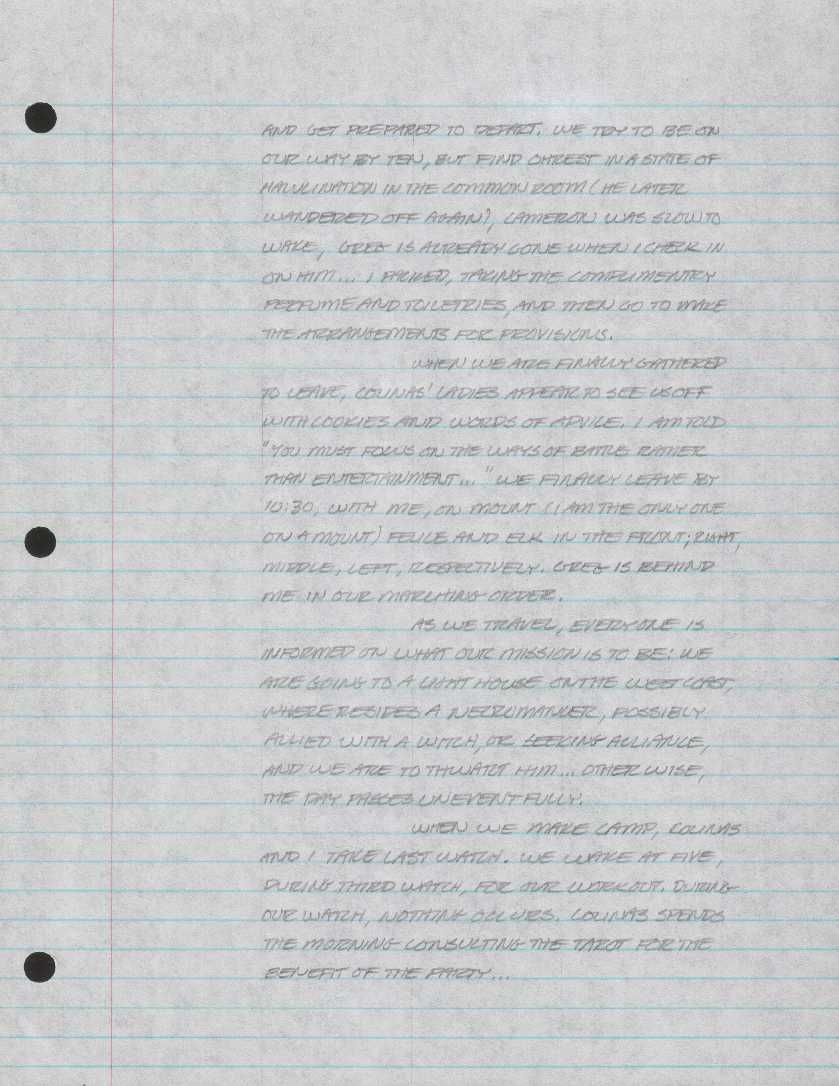 AND GET PREPARED TO DEPART. WE TRY TO BE ON
OUR WAY BY TEN, BUT FIND OHREST IN A STATE OF
HALULINATION IN THE COMMON ROOM (HE LATER
WANDERED OFF AGAIN), CAMERON WAS SLOW TO
WAKE, GREG IS ALREADY GONE WHEN I CHECK IN
ON HIM... I PACKED, TAKING THE COMPLIMENTRY
PERFUME AND TOILETRIES, AND THEN GO TO MAKE
THE ARRANGEMENTS FOR PROVISIONS.
WHEN WE ARE FINALLY GATHERED
TO LEAVE, COLINAS' LADIES APPEAR TO SEE US OFF
WITH COOKIES AND WORDS OF ADVICE. I AM TOLD
"YOU MUST FOCUS ON THE WAYS OF BATTLE RATHER
THAN ENTERTAINMENT..." WE FINALLY LEAVE BY
10:30, WITH ME, ON MOUNT (I AM THE ONLY ONE
ON A MOUNT) FELICE AND ELK IN THE FRONT; RIGHT,
MIDDLE, LEFT, RESPECTIVELY. GREG IS BEHIND
ME IN OUR MARCHING ORDER.
AS WE TRAVEL, EVERYONE IS
INFORMED ON WHAT OUR MISSION IS TO BE: WE
ARE GOING TO A LIGHT HOUSE ON THE WEST COAST,
WHERE RESIDES A NECROMANCER, POSSIBLY
ALLIED WITH A WITCH, OR SEEKING ALLIANCE,
AND WE ARE TO THWART HIM... OTHERWISE,
THE DAY PASSES UNEVENTFULLY.
WHEN WE MAKE CAMP, COLINAS
AND I TAKE LAST WATCH. WE WAKE AT FIVE,
DURING THIRD WATCH, FOR OUR WORKOUT. DURING
OUR WATCH, NOTHING OCCURS. COLINAS SPENDS
THE MORNING CONSULTING THE TAROT FOR THE
BENEFIT OF THE PARTY...